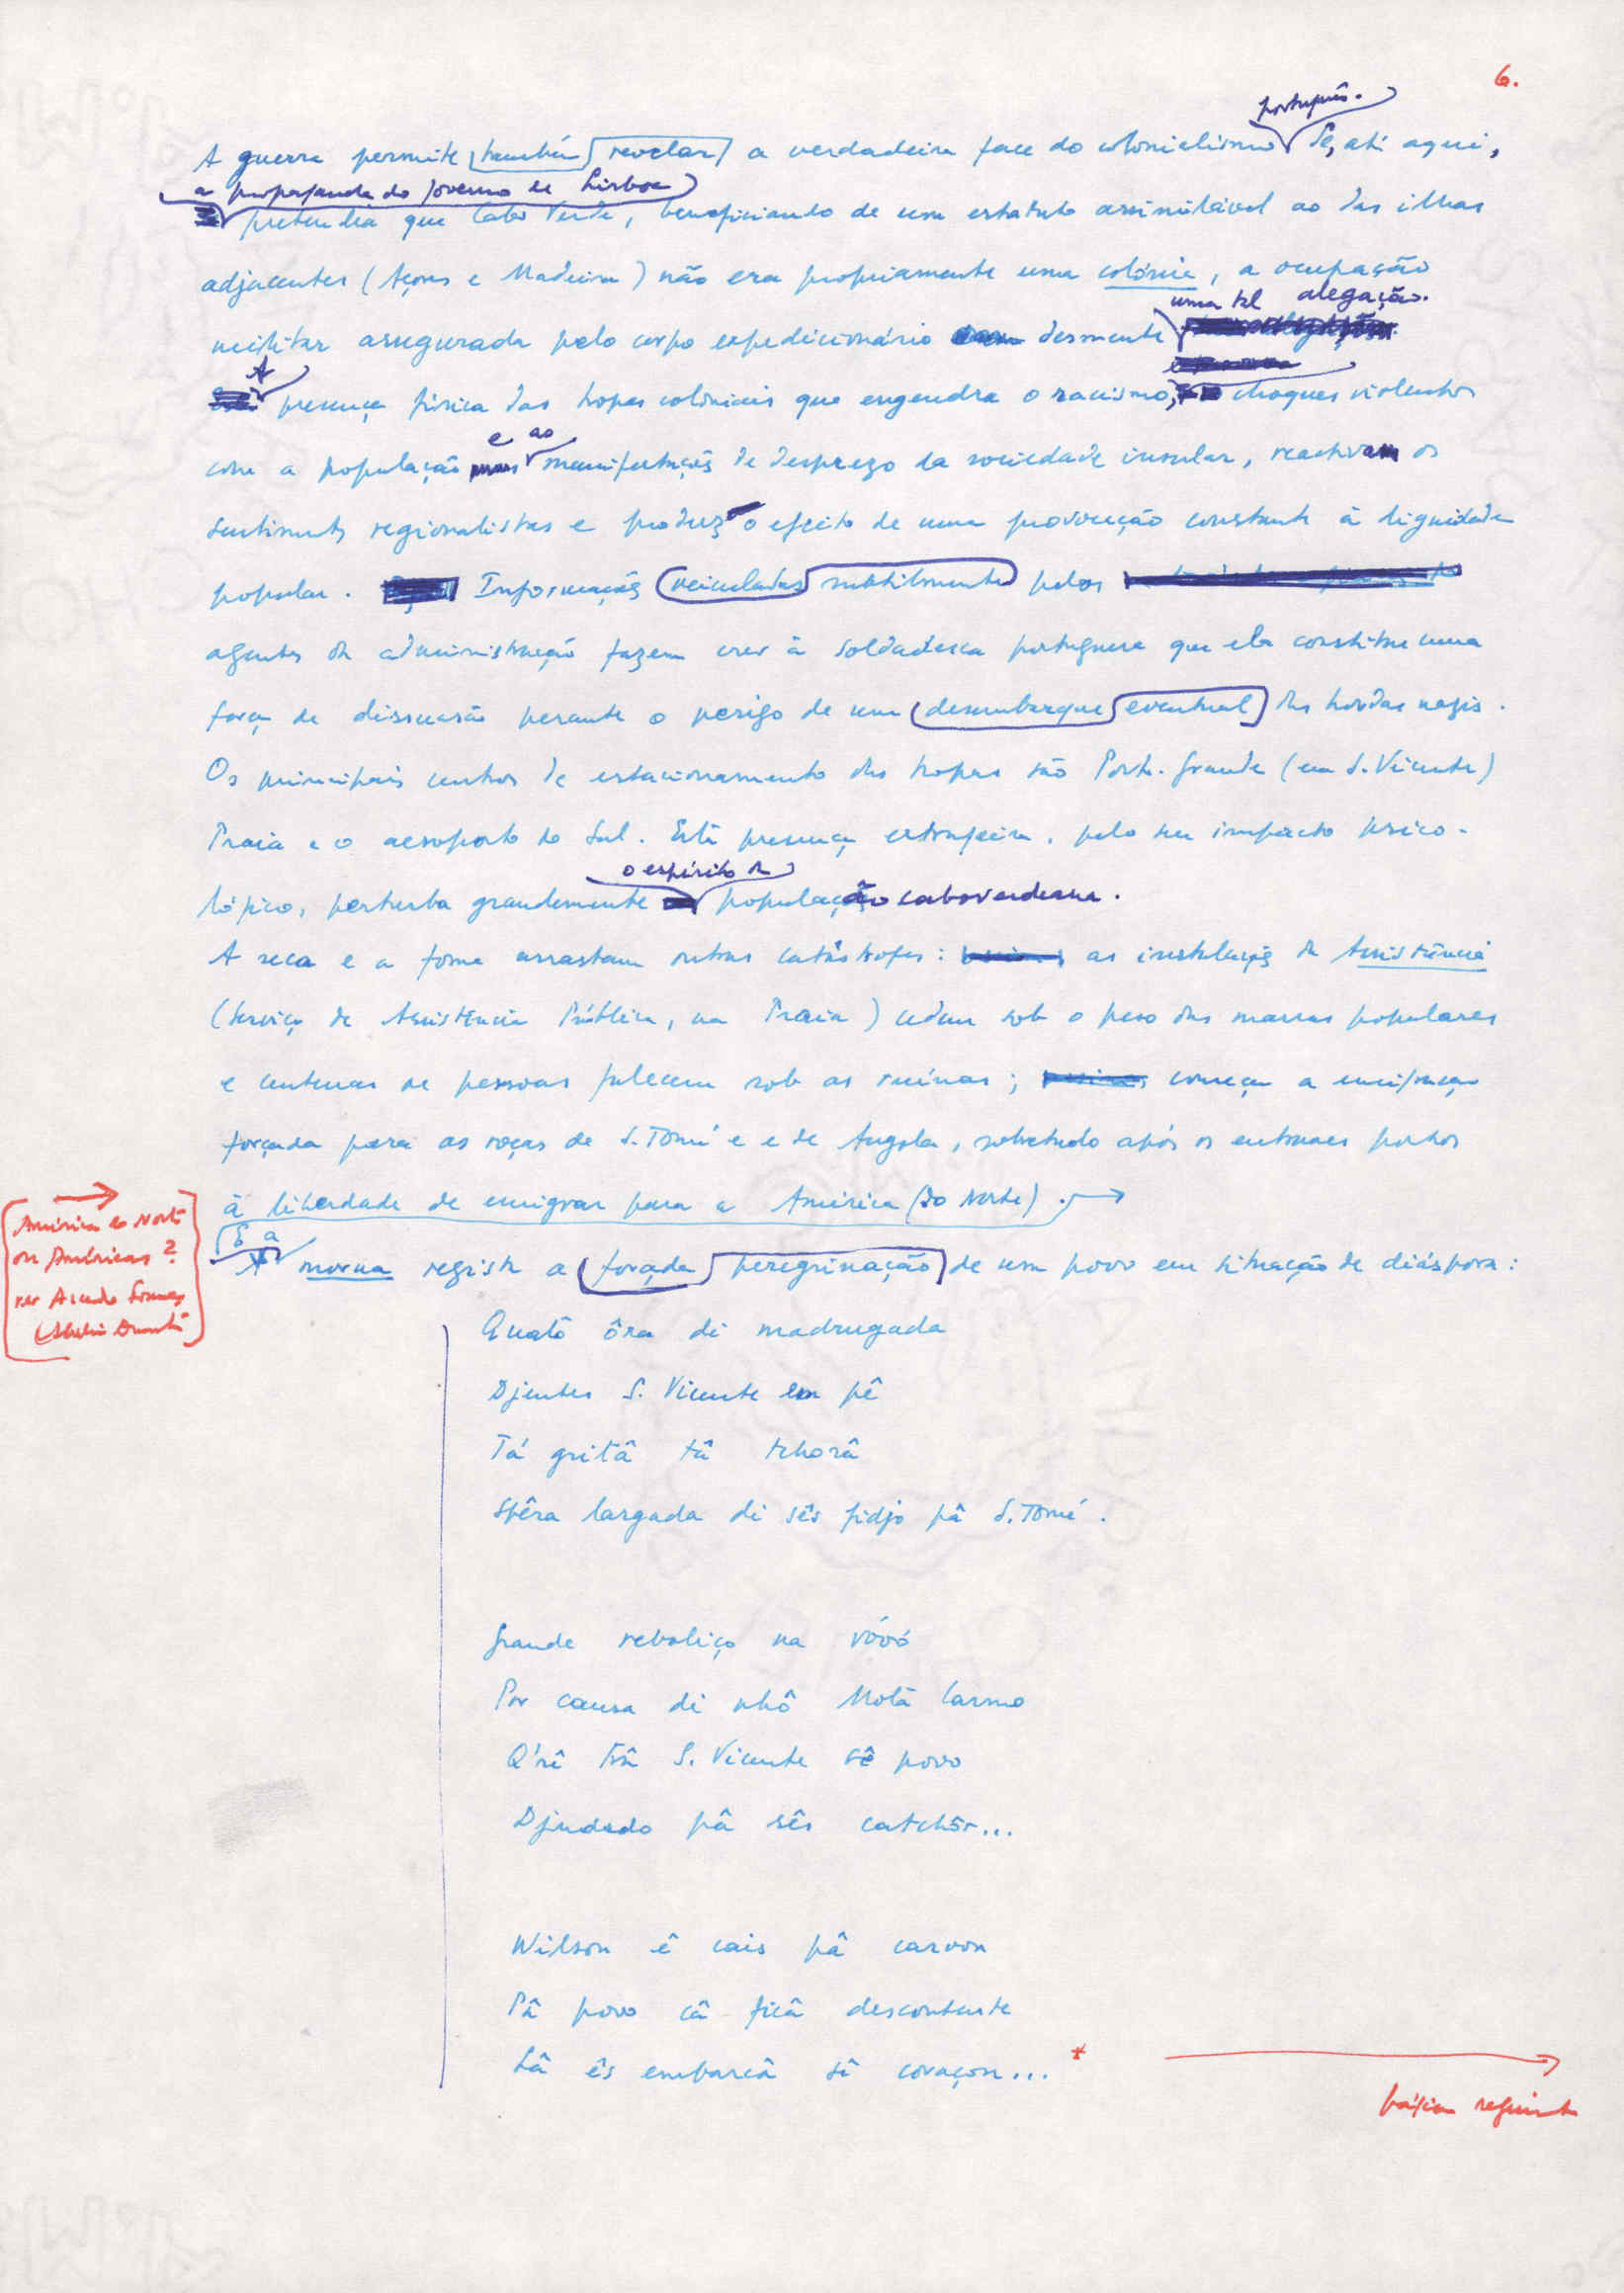 6.
português.
A guerra permite também revelar a verdadeira face do colonialismo Se, até aqui,
a propaganda do governo de Lisboa
pretendia que Cabo Verde, beneficiando de um estatuto assimilável ao das ilhas
adjacentes (Açores e Madeira) não era propriamente uma colónia, a ocupação
uma tal alegação.
militar assegurada pelo corpo expedicionário desmente
A
presença física das tropas coloniais que engendra o racismo, choques violentos
e ao
com a população manifestações de desprezo da sociedade insular, reactivam os
sentimentos regionalistas e produz o efeito de uma provocação constante à dignidade
popular. Informações veiculadas subtilmente pelos
agentes da administração fazem crer à soldadesca portuguesa que ela constitue uma
força de dissuasão perante o perigo de um desembarque eventual das hordas nazis.
Os principais centros de estacionamento das tropas são Porto-Grande (em S. Vicente)
Praia e o aeroporto do Sal. Esta presença estrangeira, pelo seu impacto psico-
o espírito da
lógico, perturba grandemente população caboverdeana.
A seca e a fome arrastam outras catástrofes: as instalações da Assistência
(Serviço de Assistência Pública, na Praia) cedem sob o peso das massas populares
e centenas de pessoas falecem sob as ruínas; começa a emigração
forçada para as roças de S. Tomé e e de Angola, sobretudo após os entraves postos
à liberdade de emigrar para a América (do Norte).
América do Norte
ou Américas?
ver
E a
morna regista a forçada peregrinação de um povo em situação de diáspora:
Quatô ôra di madrugada
Djentes S. Vicente em pê
Tá gritâ tâ tchorâ
Spêra largada di sês fidjo pâ S. Tomé.
Grande reboliço na vóvó
Por causa di nhô Motâ Carmo
Q'rê trâ S. Vicente sê povo
Djudado pâ sês catchôr...
Wilson ê cais pâ carvon
Pâ povo câ ficâ descontente
Lâ ês embarcâ sê coraçon... *
página seguinte